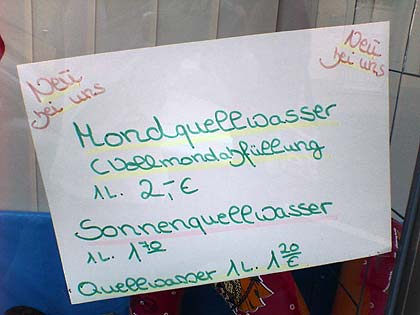 Neu
bei uns
Neu
bei uns
Mondquellwasser
(Vollmondabfüllung
1L. 2,-€
Sonnenquellwasser
1L. 1 70
Quellwasser 1L. 1 20 €